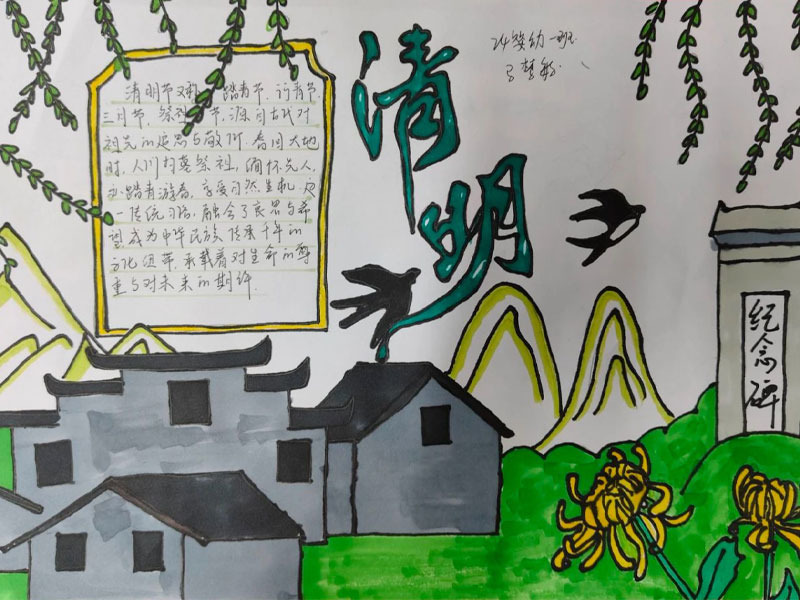 清明
24婴幼一班
清明节又称踏青节、行青节
三月节、祭祖节,源自古代对
祖先的追思与敬仰。春回大地
时,人们扫墓祭祖,缅怀先人,
踏青游春,享受自然生机,这
一传统习俗,融合了哀思与希
望成为中华民族传承千年的
文化纽带,承载着对生命的尊
重与对未来的期许.
纪念碑